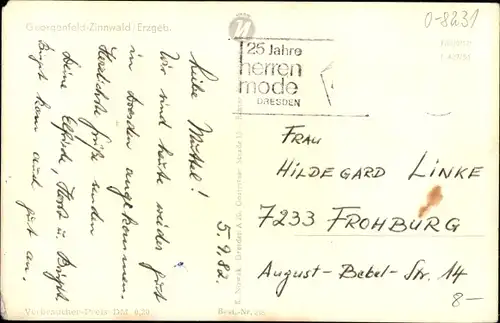 Georgenfeld-Zinnwald/Erzgeb.
0-8231
25 Jahre
herren
mode
DRESDEN
5.9.82.
Liebe Muttel!
Wir sind heute wieder gut
in Dresden angekommen.
Herzlichste Grüße senden
Deine Elfriede, Horst u. Birgit
Birgit kam auch gut an.
FRAU
HILDEGARD LINKE
7233 FROHBURG
AUGUST-BEBEL-STR. 14
8-
Verbraucher-Preis DM 0,20
Best.-Nr.